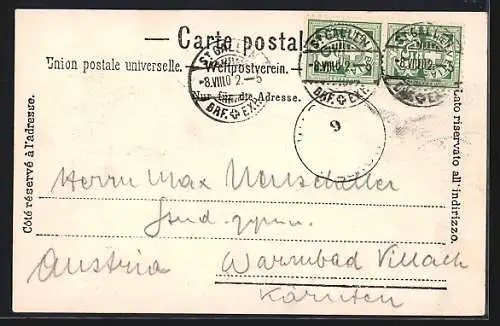 Carte postale
Union postale universelle. — Weltpostverein. —
Nur für die Adresse.
Côté réservé à l'adresse.
Lato riservato all'indirizzo.
ST. GALLEN
8.VIII.02.–5
BRF. EXP.
ST. GALLEN
8.VIII.02.–5
BRF. EXP.
ST. GALLEN
8.VIII.02.–5
9
Herrn Max
stud.
Austria Warmbad Villach
Kärnten